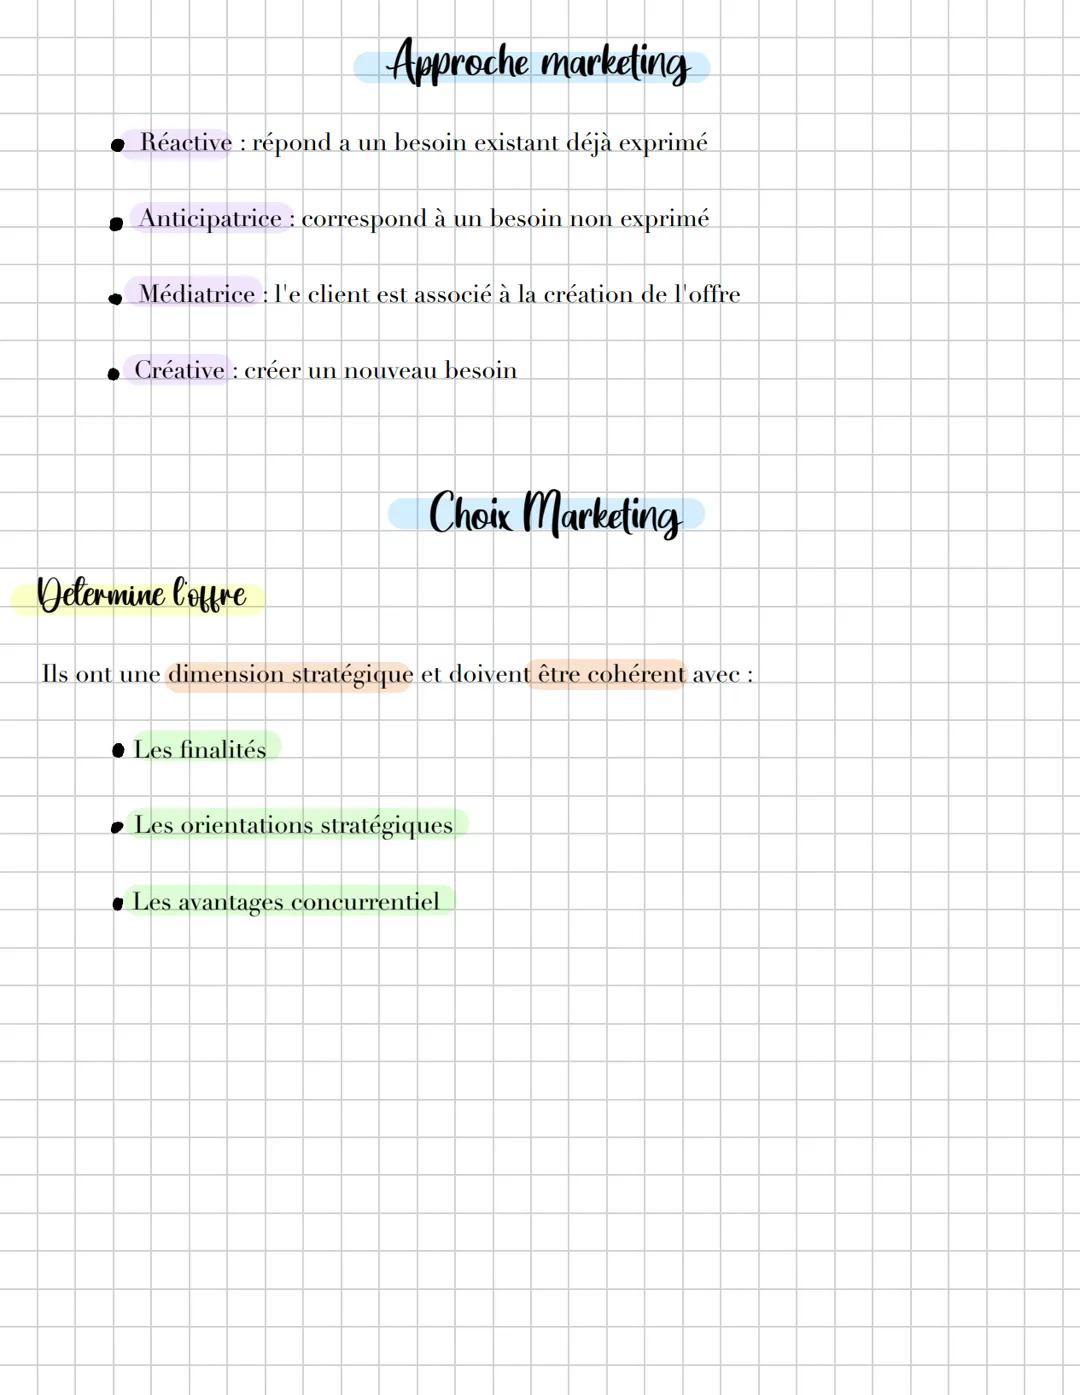 Approche marketing
• Réactive : répond a un besoin existant déjà exprimé
• Anticipatrice : correspond à un besoin non exprimé
• Médiatrice : l'e client est associé à la création de l'offre
• Créative : créer un nouveau besoin
Choix Marketing
Determine l'offre
Ils ont une dimension stratégique et doivent être cohérent avec :
• Les finalités
• Les orientations stratégiques
• Les avantages concurrentiel